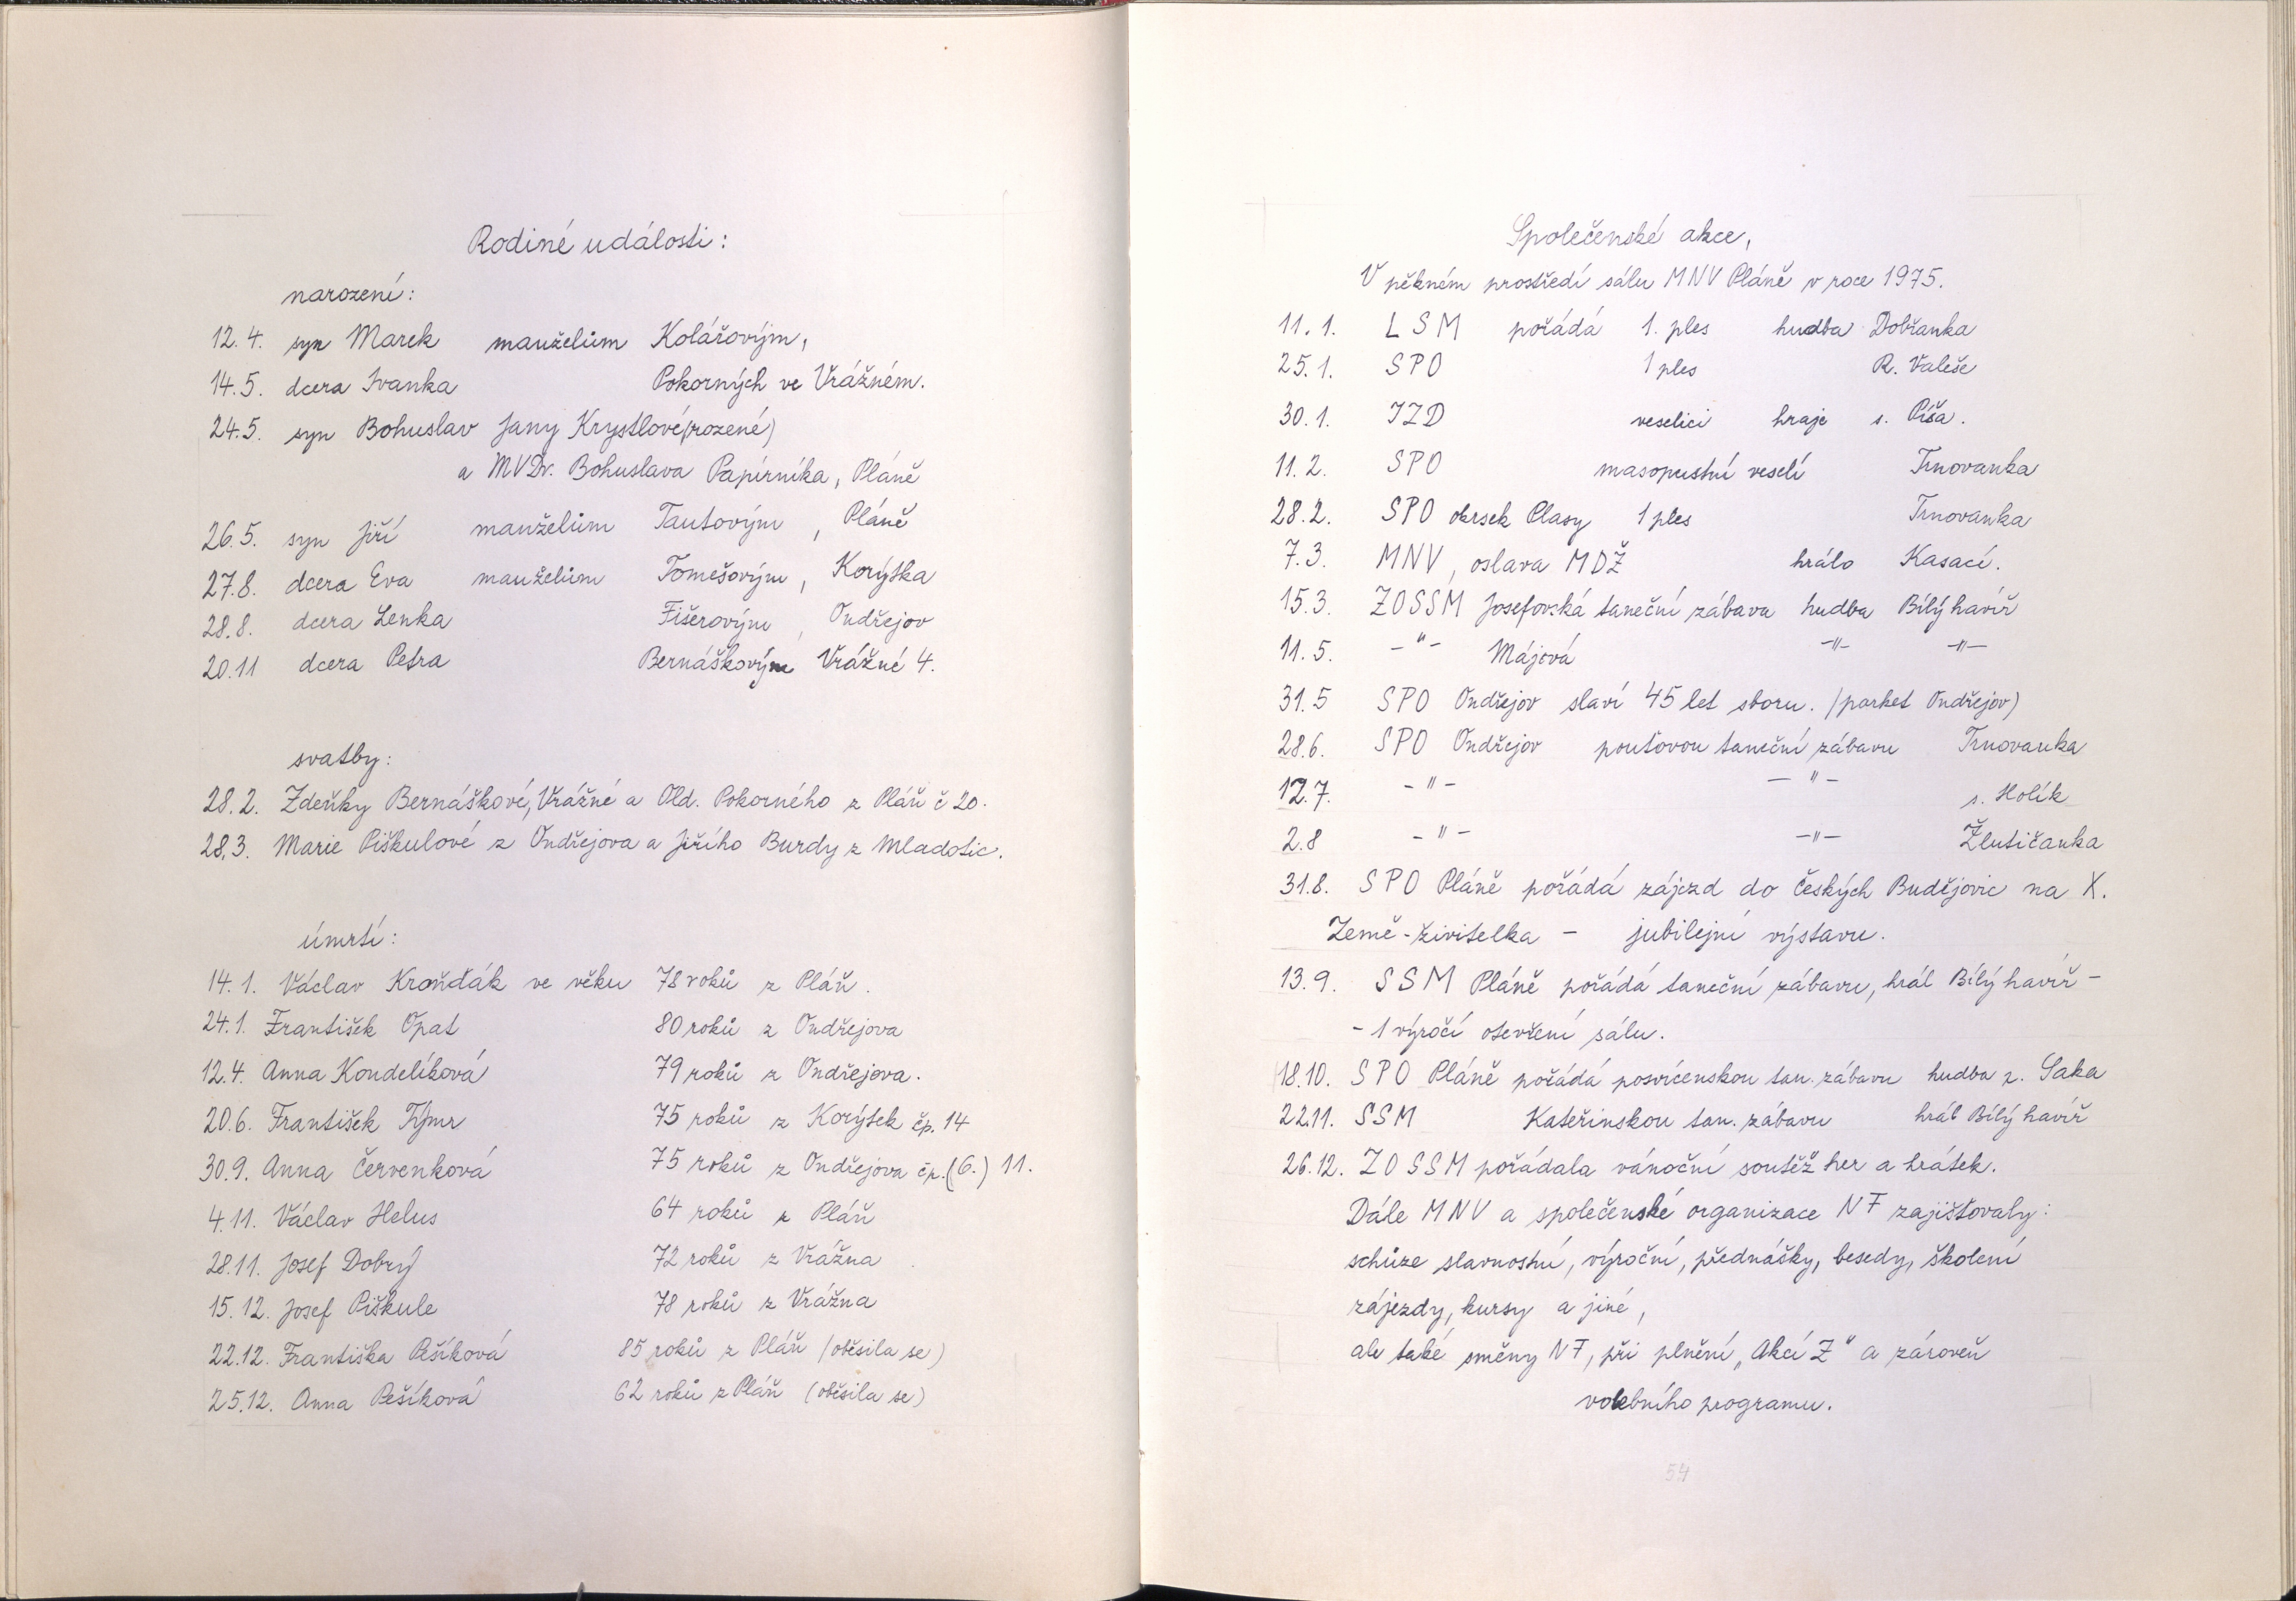 Rodiné události:
narození:
12.4. syn Marek manželům Kolářovým,
14.5. dcera Ivanka Pokorných ve Vrážném.
24.5. syn Bohuslav Jany Krystlové (rozené)
a MVDr. Bohuslava Papírníka, Pláně
26.5. syn Jiří manželům Tautovým, Pláně
27.8. dcera Eva manželům Tomešovým, Korýtka
28.8. dcera Lenka Fišerovým, Ondřejov
20.11 dcera Petra Bernáškovým Vrážné 4.
svatby:
28.2. Zdeňky Bernáškové, Vrážné a Old. Pokorného z Pláň č 20.
28.3. Marie Piškulové z Ondřejova a Jiřího Burdy z Mladotic.
úmrtí:
14.1. Václav Kronďák ve věku 78 roků z Pláň.
24.1. František Opat 80 roků z Ondřejova
12.4. Anna Kondelíková 79 roků z Ondřejova.
20.6. František Týmr 75 roků z Korýtek čp. 14
30.9. Anna Červenková 75 roků z Ondřejova čp. (6.) 11.
4.11. Václav Helus 64 roků z Pláň
28.11. Josef Dobrý 72 roků z Vrážna
15.12. Josef Piškule 78 roků z Vrážna
22.12. Františka Pešíková 85 roků z Pláň (oběsila se)
25.12. Anna Pešíková 62 roků z Pláň (oběsila se)
Společenské akce,
V pěkném prostředí sálu MNV Pláně v roce 1975.
11. 1. LSM pořádá 1. ples hudba Dobřanka
25. 1. SPO 1 ples R. Valeše
30. 1. JZD veselici hraje s. Píša.
11. 2. SPO masopustní veselí Trnovanka
28. 2. SPO okrsek Plasy 1 ples Trnovanka
7. 3. MNV, oslava MDŽ hrálo Kasací.
15.3. ZOSSM Josefovská taneční zábava hudba Bílý havíř
11. 5. -"- Májová -"- -"-
31.5 SPO Ondřejov slaví 45 let sboru. (parket Ondřejov)
28.6. SPO Ondřejov pouťovou taneční zábavu Trnovanka
12.7. -"- -"- s. Holík
2.8 -"- -"- Žlutičanka
31.8. SPO Pláně pořádá zájezd do Českých Budějovic na X.
Země-živitelka - jubilejní výstavu.
13.9. SSM Pláně pořádá taneční zábavu, hrál Bílý havíř -
- 1 výročí otevření sálu.
18.10. SPO Pláně pořádá posvícenskou tan. zábavu hudba p. Saka
22.11. SSM Kateřinskou tan. zábavu hrál Bílý havíř
26.12. ZO SSM pořádala vánoční soutěž her a hrátek.
Dále MNV a společenské organizace NF zajišťovaly:
schůze slavnostní, výroční, přednášky, besedy, školení
zájezdy, kursy a jiné,
ale také směny NF, při plnění „Akcí Z" a zároveň
volebního programu.
54